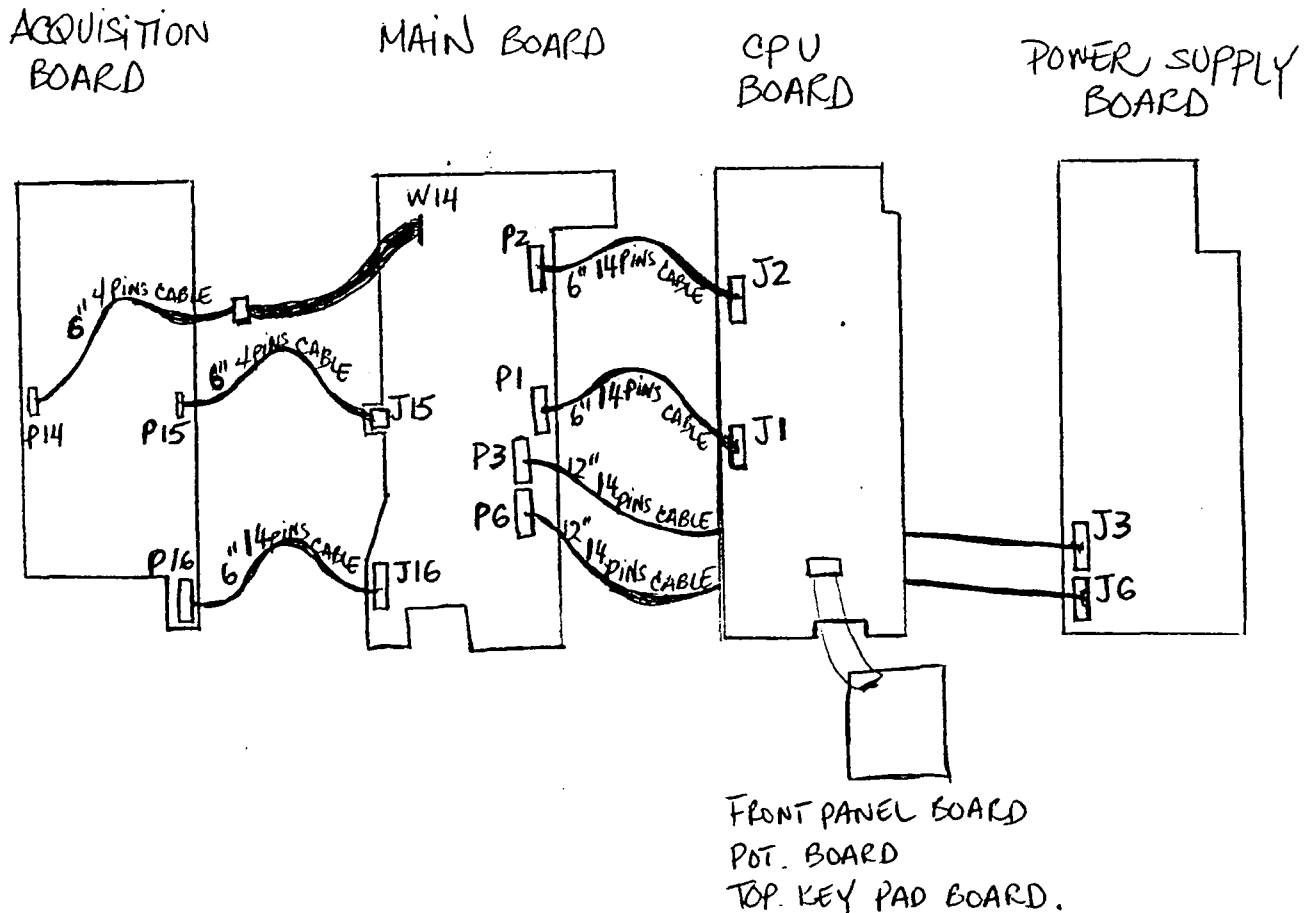 ACQUISITION
BOARD
MAIN BOARD
CPU
BOARD
POWER SUPPLY
BOARD
W14
P2
6" 14 PINS CABLE
J2
6" 4 PINS CABLE
6" 4 PINS CABLE
P14
P15
J15
P1
6" 14 PINS CABLE
J1
P3
12" 14 PINS CABLE
P6
12" 14 PINS CABLE
J3
J6
P16
6" 14 PINS CABLE
J16
FRONT PANEL BOARD
POT. BOARD
TOP. KEY PAD BOARD.